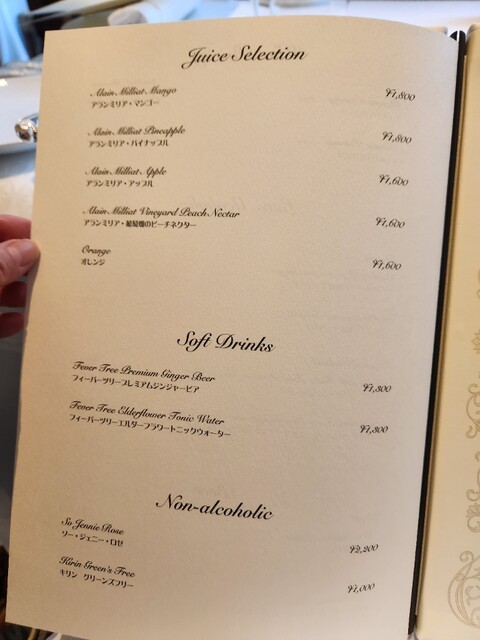 Juice Selection
Alain Milliat Mango ¥1,800
アランミリア・マンゴー
Alain Milliat Pineapple ¥1,800
アランミリア・パイナップル
Alain Milliat Apple ¥1,600
アランミリア・アップル
Alain Milliat Vineyard Peach Nectar ¥1,600
アランミリア・葡萄畑のピーチネクター
Orange ¥1,600
オレンジ
Soft Drinks
Fever Tree Premium Ginger Beer ¥1,300
フィーバーツリープレミアムジンジャービア
Fever Tree Elderflower Tonic Water ¥1,300
フィーバーツリーエルダーフラワートニックウォーター
Non-alcoholic
So Jennie Rose ¥2,200
ソー・ジェニー・ロゼ
Kirin Green's Free ¥1,000
キリン グリーンズフリー